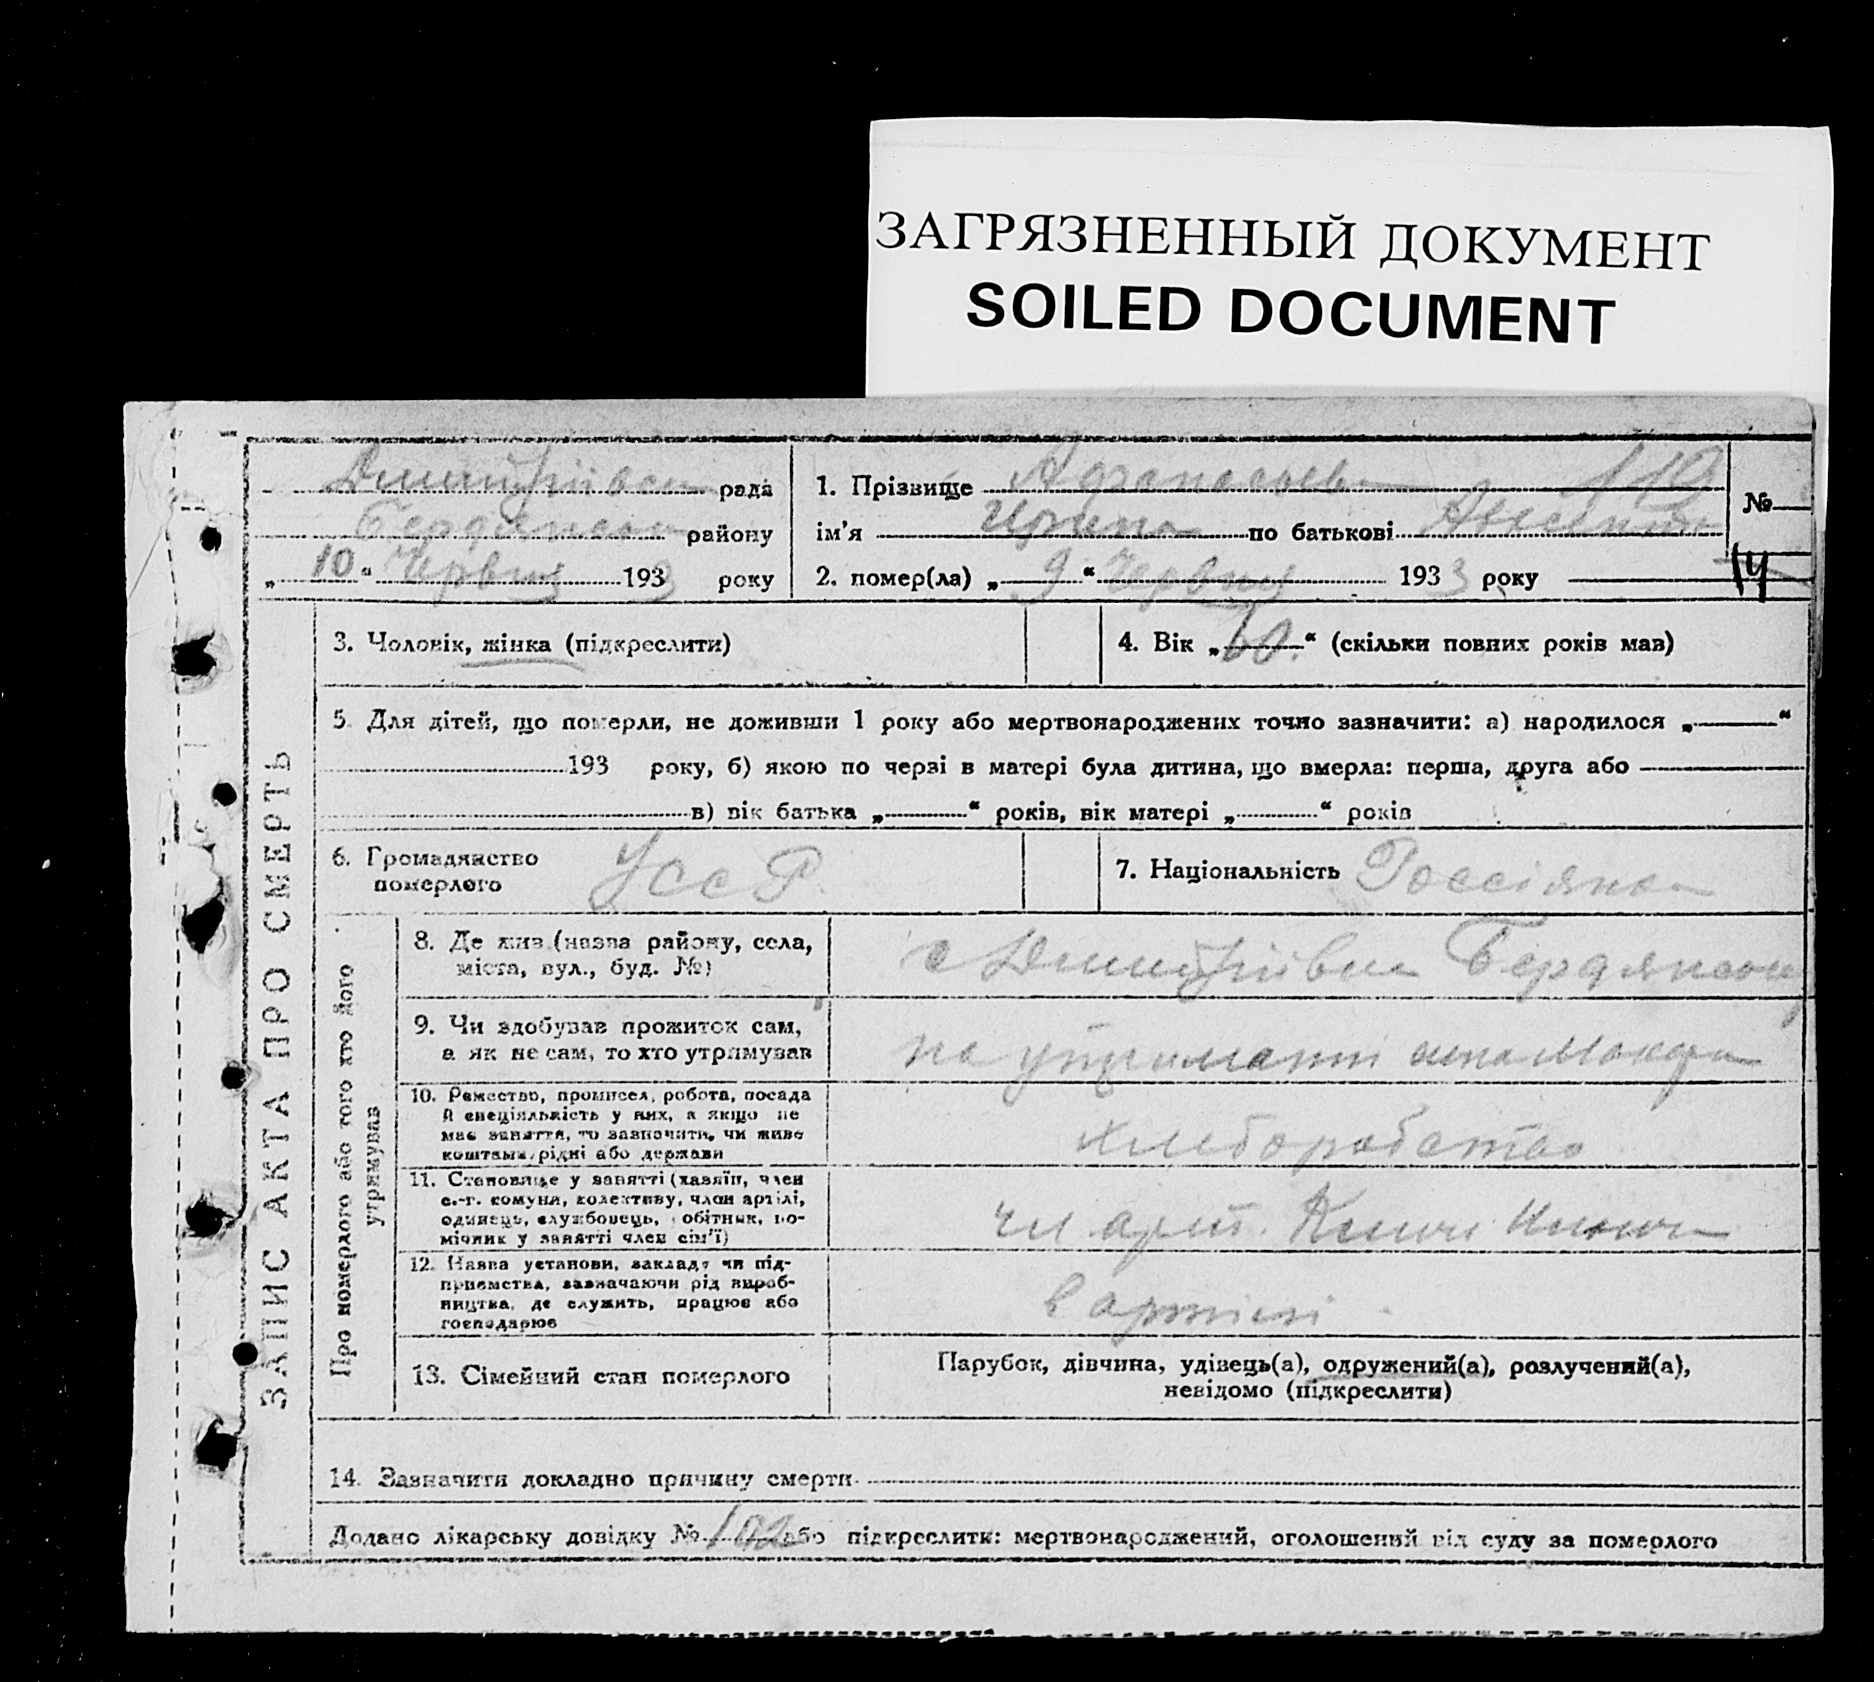 ЗАГРЯЗНЕННЫЙ ДОКУМЕНТ
SOILED DOCUMENT
ЗАПИС АКТА ПРО СМЕРТЬ
Дмитрівсь рада
Бердянськ району
„10“ Червня 1933 року
1. Прізвище 119
№
ім'я по батькові
2. помер(ла) „9“ Червня 1933 року
14
3. Чоловік, жінка (підкреслити)
4. Вік „60“ (скільки повних років мав)
5. Для дітей, що померли, не доживши 1 року або мертвонароджених точно зазначити: а) народилося „ “
193 року, б) якою по черзі в матері була дитина, що вмерла: перша, друга або
в) вік батька „ “ років, вік матері „ “ років
6. Громадянство
померлого
УССР
7. Національність Россіянка
Про померлого або того хто його
утримував
8. Де жив (назва району, села,
міста, вул., буд. №)
с Дмитрівка
9. Чи здобував прожиток сам,
а як не сам, то хто утримував
на утриманні сина Макара
10. Ремество, промисел, робота, посада
й спеціяльність у них, а якщо не
має заняття, то зазначити, чи живе
коштами рідні або держави
хлеборобство
11. Становище у занятті (хазяїн, член
с.-г. комуни, колективу, член артілі,
одинець, службовець, робітник, по-
мічник у занятті член сім'ї)
чл арт.
12. Назва установи, закладу чи під-
приємства, зазначаючи рід вироб-
ництва, де служить, працює або
господарює
в артілі
13. Сімейний стан померлого
Парубок, дівчина, удівець(а), одружений(а), розлучений(а),
невідомо (підкреслити)
14. Зазначити докладно причину смерти
Додано лікарську довідку № 102 або підкреслити: мертвонароджений, оголошений від суду за померлого